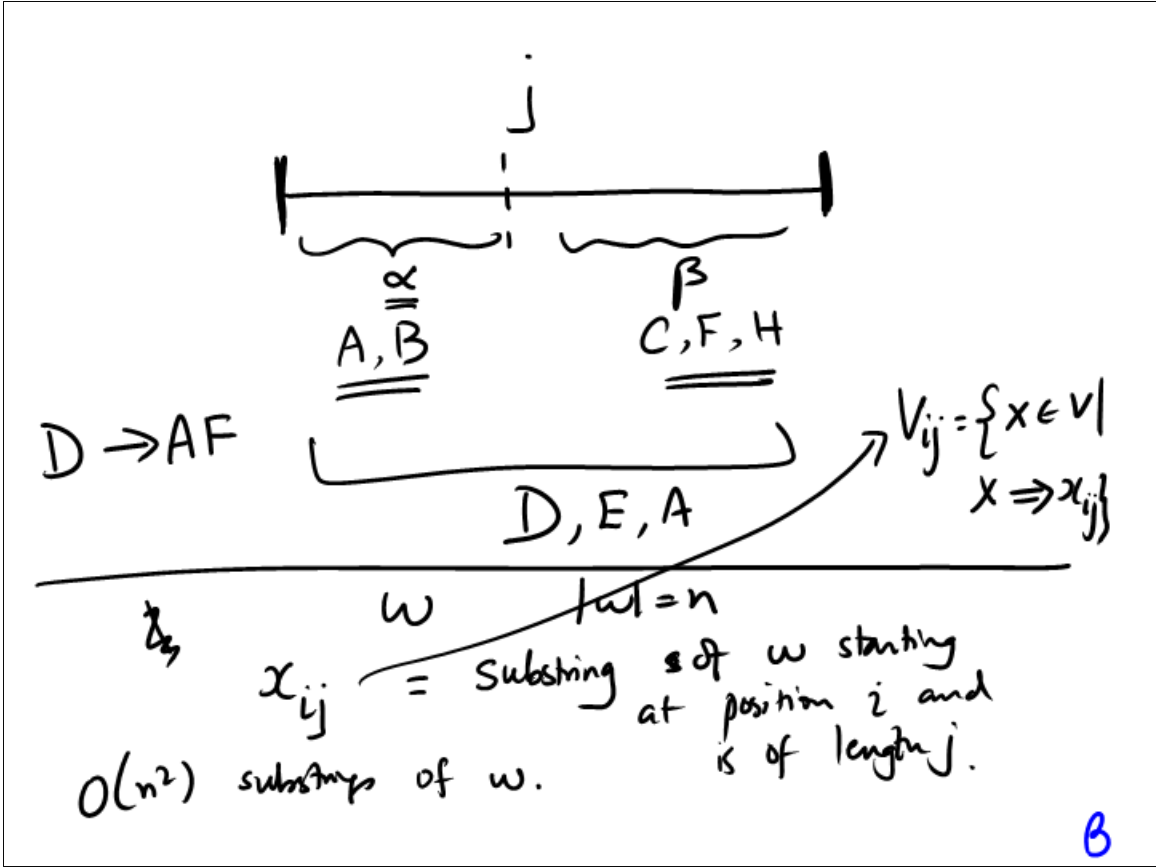 j
α β
A, B C, F, H
D → AF
V_ij = { X ∈ V |
X ⇒ x_ij }
D, E, A
w |w| = n
x_ij = Substring of w starting
at position i and
is of length j.
O(n²) substrings of w.
B